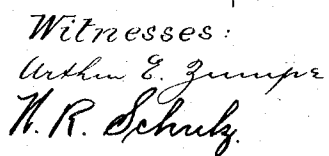 Witnesses:
Arthur E. Zumpe
W. R. Schulz.